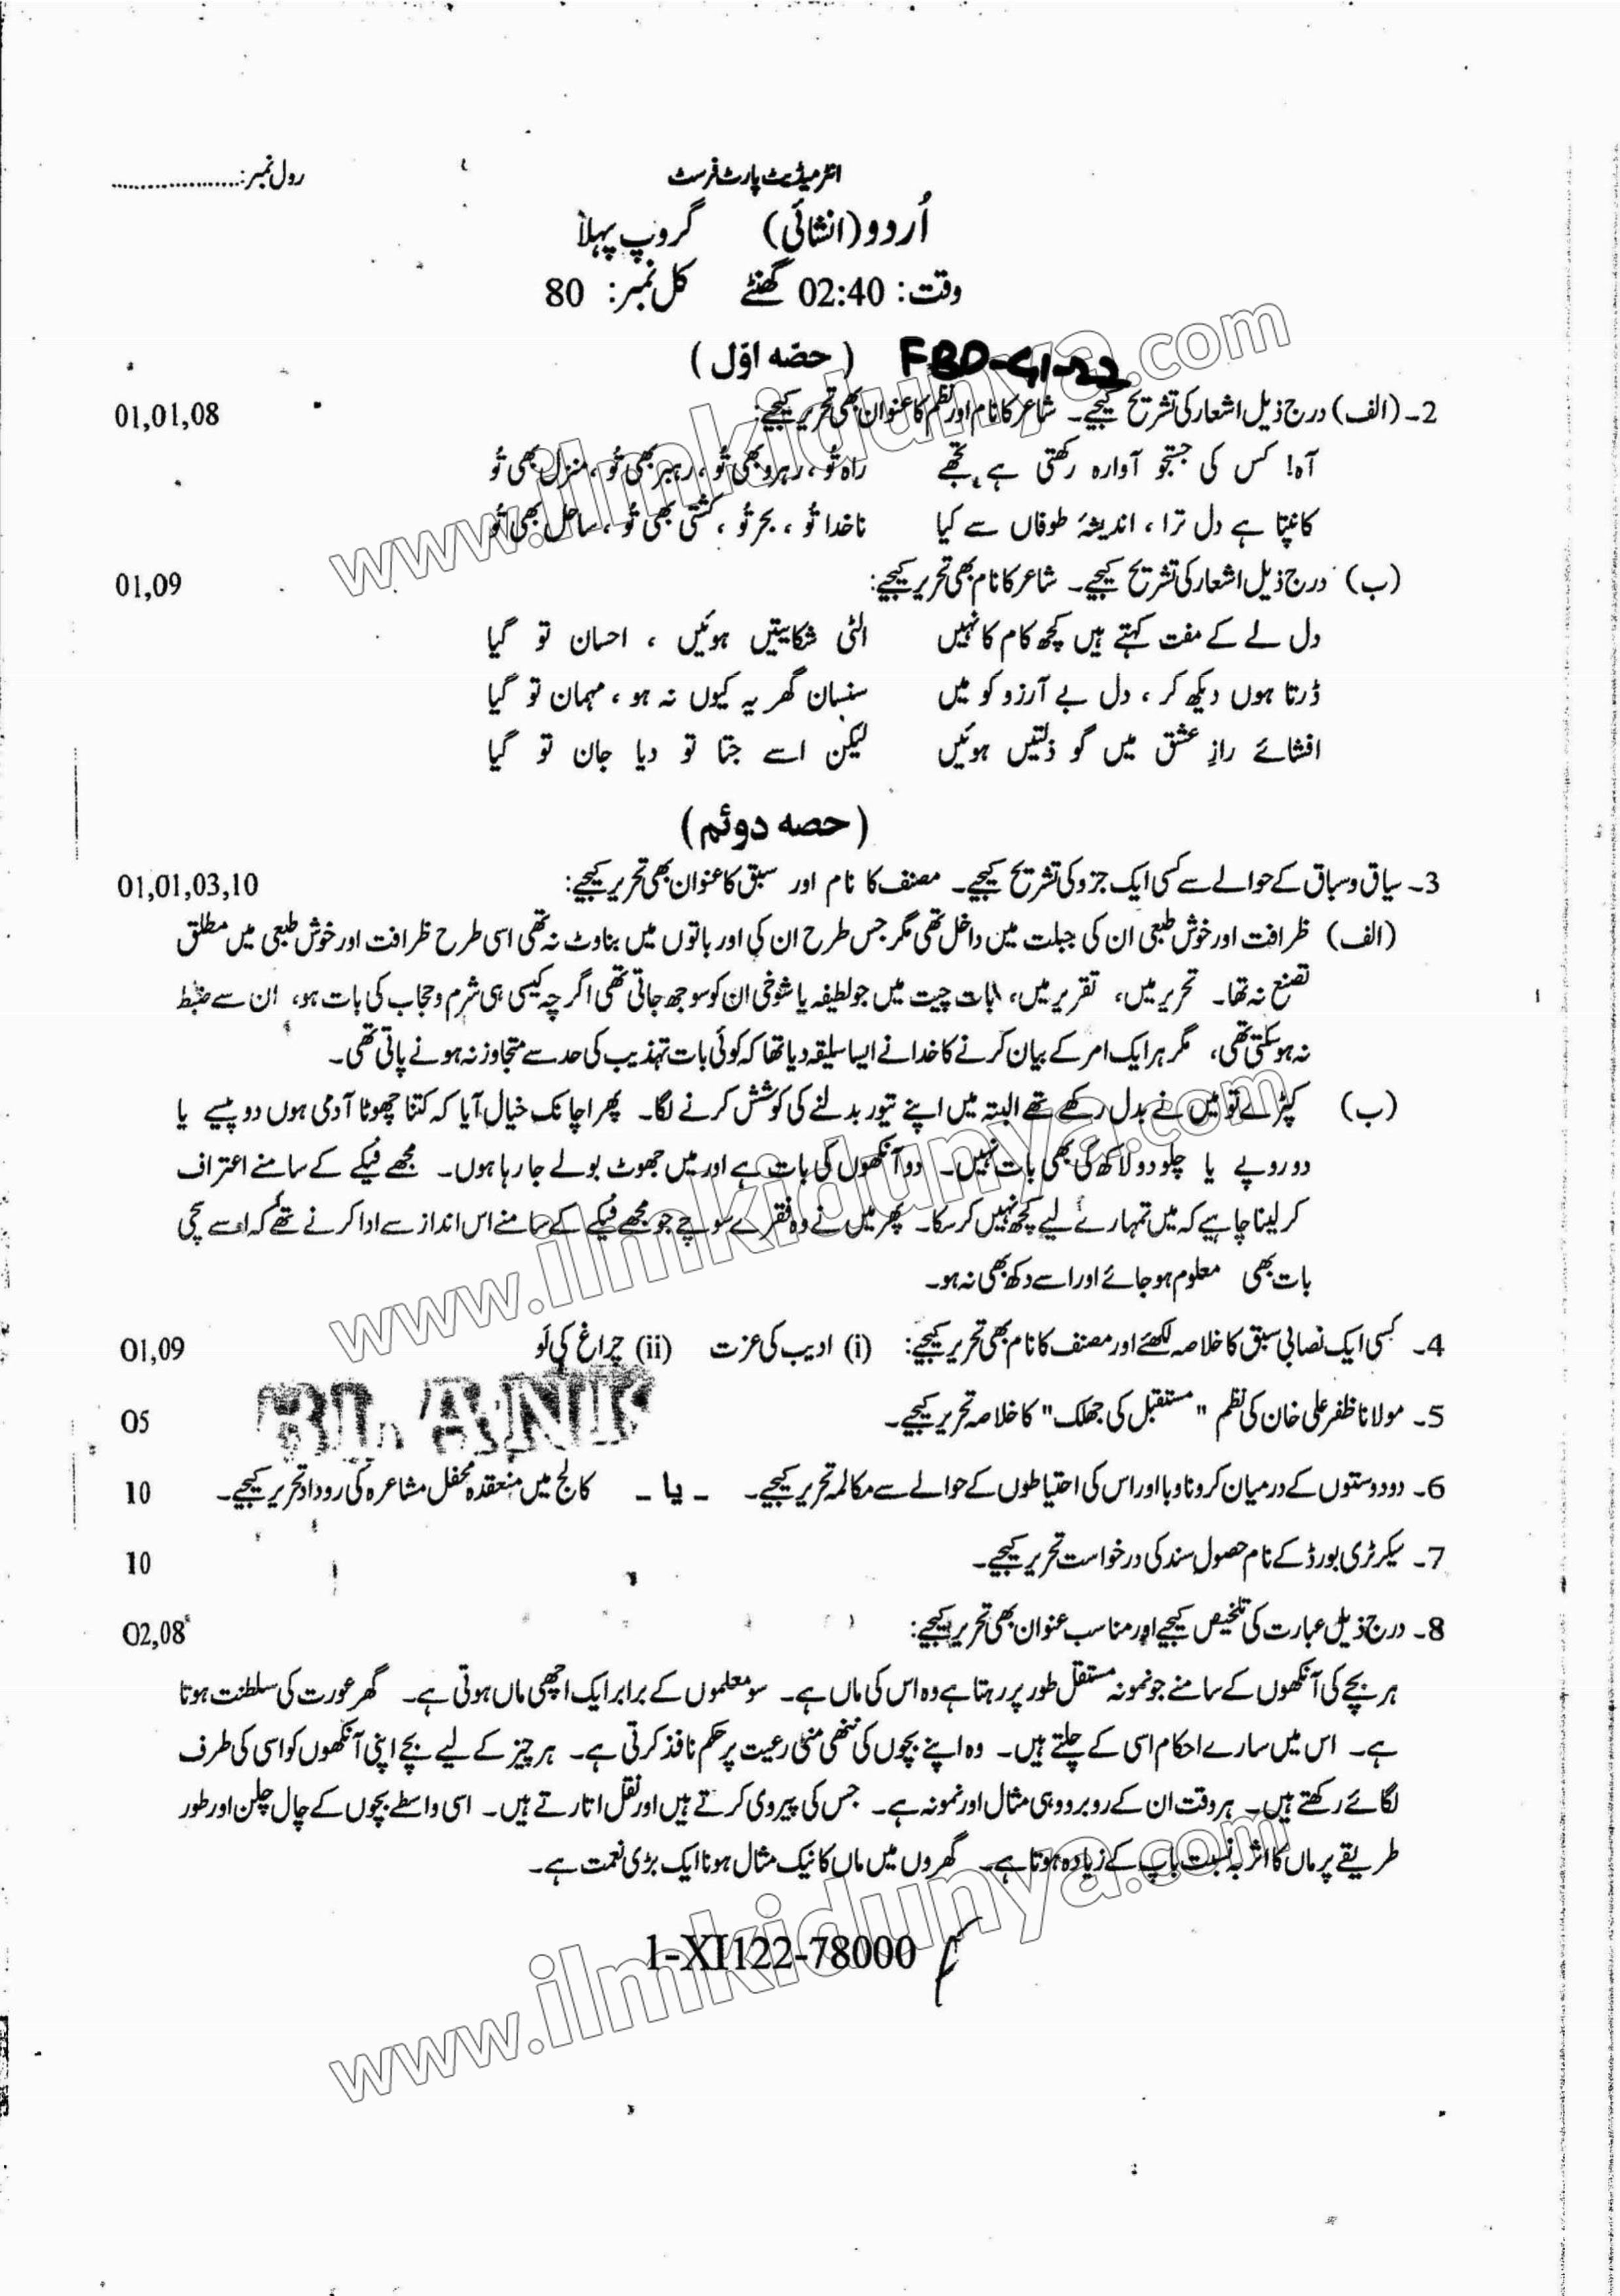 انٹرمیڈیٹ پارٹ فرسٹ
رول نمبر:...................
اُردو (انشائی) گروپ پہلا
وقت: 02:40 گھنٹے کل نمبر: 80
(حصّہ اوّل) FBD-G1-22
2۔ (الف) درج ذیل اشعار کی تشریح کیجیے۔ شاعر کا نام اور نظم کا عنوان بھی تحریر کیجیے: 01,01,08
آہ! کس کی جستجو آوارہ رکھتی ہے تجھے راہ تُو، رہرو بھی تُو، رہبر بھی تُو، منزل بھی تُو
کانپتا ہے دل ترا، اندیشۂ طوفاں سے کیا ناخدا تُو، بحر تُو، کشتی بھی تُو، ساحل بھی تُو
(ب) درج ذیل اشعار کی تشریح کیجیے۔ شاعر کا نام بھی تحریر کیجیے: 01,09
دل لے کے مفت کہتے ہیں کچھ کام کا نہیں الٹی شکایتیں ہوئیں، احسان تو گیا
ڈرتا ہوں دیکھ کر، دل بے آرزو کو میں سنسان گھر یہ کیوں نہ ہو، مہمان تو گیا
افشائے رازِ عشق میں گو ذلتیں ہوئیں لیکن اسے جتا تو دیا جان تو گیا
(حصہ دوئم)
3۔ سیاق و سباق کے حوالے سے کسی ایک جزو کی تشریح کیجیے۔ مصنف کا نام اور سبق کا عنوان بھی تحریر کیجیے: 01,01,03,10
(الف) ظرافت اور خوش طبعی ان کی جبلت میں داخل تھی مگر جس طرح ان کی اور باتوں میں بناوٹ نہ تھی اسی طرح ظرافت اور خوش طبعی میں مطلق
تصنع نہ تھا۔ تحریر میں، تقریر میں، بات چیت میں جو لطیفہ یا شوخی ان کو سوجھ جاتی تھی اگرچہ کیسی ہی شرم و حجاب کی بات ہو، ان سے ضبط
نہ ہو سکتی تھی، مگر ہر ایک امر کے بیان کرنے کا خدا نے ایسا سلیقہ دیا تھا کہ کوئی بات تہذیب کی حد سے متجاوز نہ ہونے پاتی تھی۔
(ب) کپڑے تو میں نے بدل رکھے تھے البتہ میں اپنے تیور بدلنے کی کوشش کرنے لگا۔ پھر اچانک خیال آیا کہ کتنا چھوٹا آدمی ہوں دو پیسے یا
دو روپے یا چلو دو لاکھ کی بھی بات نہیں۔ دو آنکھوں کی بات ہے اور میں جھوٹ بولے جا رہا ہوں۔ مجھے فیکے کے سامنے اعتراف
کر لینا چاہیے کہ میں تمہارے لیے کچھ نہیں کر سکا۔ پھر میں نے وہ فقرے سوچے جو مجھے فیکے کے سامنے اس انداز سے ادا کرنے تھے کہ اسے سچی
بات بھی معلوم ہو جائے اور اسے دکھ بھی نہ ہو۔
4۔ کسی ایک نصابی سبق کا خلاصہ لکھئے اور مصنف کا نام بھی تحریر کیجیے: (i) ادیب کی عزت (ii) چراغ کی لَو O1,09
5۔ مولانا ظفر علی خان کی نظم "مستقبل کی جھلک" کا خلاصہ تحریر کیجیے۔ O5
6۔ دو دوستوں کے درمیان کرونا وبا اور اس کی احتیاطوں کے حوالے سے مکالمہ تحریر کیجیے۔ ۔ یا ۔ کالج میں منعقدہ محفل مشاعرہ کی روداد تحریر کیجیے۔ 10
7۔ سیکرٹری بورڈ کے نام حصولِ سند کی درخواست تحریر کیجیے۔ 10
8۔ درج ذیل عبارت کی تلخیص کیجیے اور مناسب عنوان بھی تحریر کیجیے: O2,08
ہر بچے کی آنکھوں کے سامنے جو نمونہ مستقل طور پر رہتا ہے وہ اس کی ماں ہے۔ سو معلموں کے برابر ایک اچھی ماں ہوتی ہے۔ گھر عورت کی سلطنت ہوتا
ہے۔ اس میں سارے احکام اسی کے چلتے ہیں۔ وہ اپنے بچوں کی ننھی منی رعیت پر حکم نافذ کرتی ہے۔ ہر چیز کے لیے بچے اپنی آنکھوں کو اسی کی طرف
لگائے رکھتے ہیں۔ ہر وقت ان کے روبرو وہی مثال اور نمونہ ہے۔ جس کی پیروی کرتے ہیں اور نقل اتارتے ہیں۔ اسی واسطے بچوں کے چال چلن اور طور
طریقے پر ماں کا اثر بہ نسبت باپ کے زیادہ ہوتا ہے۔ گھروں میں ماں کا نیک مثال ہونا ایک بڑی نعمت ہے۔
1-XI122-78000
www.ilmkidunya.com
www.ilmkidunya.com
www.ilmkidunya.com